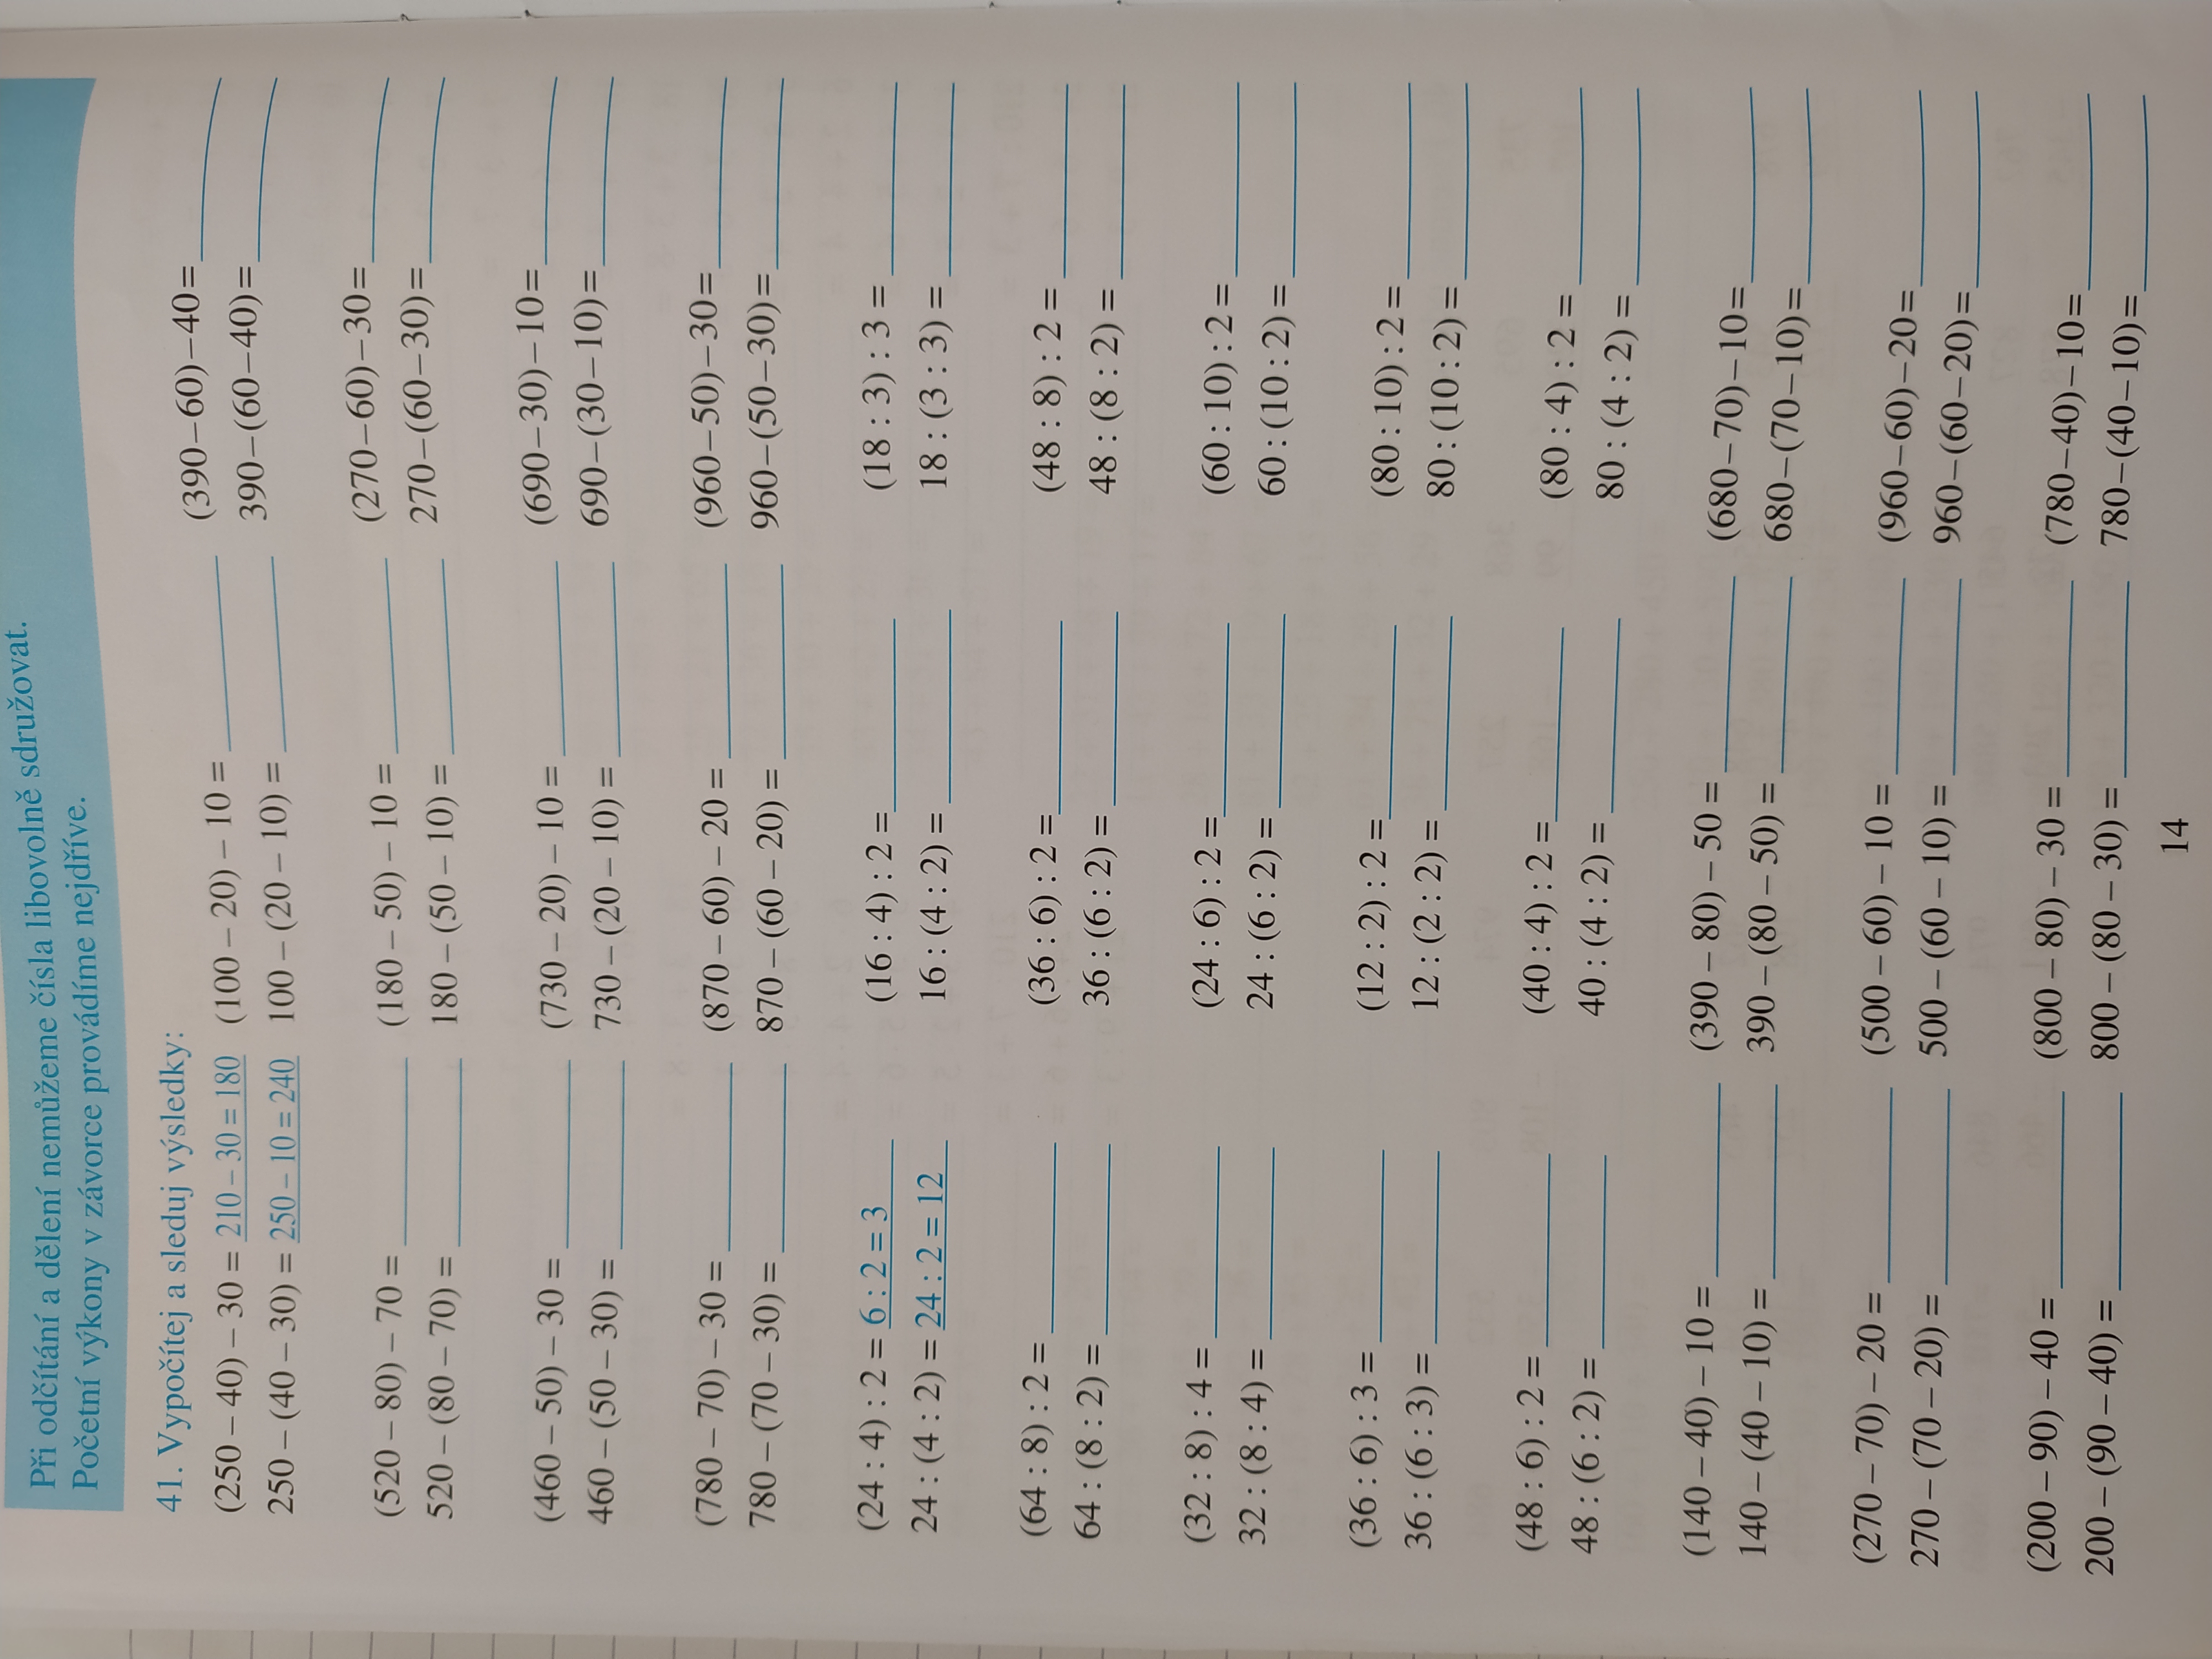 Při odčítání a dělení nemůžeme čísla libovolně sdružovat.
Početní výkony v závorce provádíme nejdříve.
41. Vypočítej a sleduj výsledky:
(250 – 40) – 30 = 210 – 30 = 180 (100 – 20) – 10 = (390–60)–40=
250 – (40 – 30) = 250 – 10 = 240 100 – (20 – 10) = 390–(60–40)=
(520 – 80) – 70 = (180 – 50) – 10 = (270–60)–30=
520 – (80 – 70) = 180 – (50 – 10) = 270–(60–30)=
(460 – 50) – 30 = (730 – 20) – 10 = (690–30)–10=
460 – (50 – 30) = 730 – (20 – 10) = 690–(30–10)=
(780 – 70) – 30 = (870 – 60) – 20 = (960–50)–30=
780 – (70 – 30) = 870 – (60 – 20) = 960–(50–30)=
(24 : 4) : 2 = 6 : 2 = 3 (16 : 4) : 2 = (18 : 3) : 3 =
24 : (4 : 2) = 24 : 2 = 12 16 : (4 : 2) = 18 : (3 : 3) =
(64 : 8) : 2 = (36 : 6) : 2 = (48 : 8) : 2 =
64 : (8 : 2) = 36 : (6 : 2) = 48 : (8 : 2) =
(32 : 8) : 4 = (24 : 6) : 2 = (60 : 10) : 2 =
32 : (8 : 4) = 24 : (6 : 2) = 60 : (10 : 2) =
(36 : 6) : 3 = (12 : 2) : 2 = (80 : 10) : 2 =
36 : (6 : 3) = 12 : (2 : 2) = 80 : (10 : 2) =
(48 : 6) : 2 = (40 : 4) : 2 = (80 : 4) : 2 =
48 : (6 : 2) = 40 : (4 : 2) = 80 : (4 : 2) =
(140 – 40) – 10 = (390 – 80) – 50 = (680–70)–10=
140 – (40 – 10) = 390 – (80 – 50) = 680–(70–10)=
(270 – 70) – 20 = (500 – 60) – 10 = (960–60)–20=
270 – (70 – 20) = 500 – (60 – 10) = 960–(60–20)=
(200 – 90) – 40 = (800 – 80) – 30 = (780–40)–10=
200 – (90 – 40) = 800 – (80 – 30) = 780–(40–10)=
14